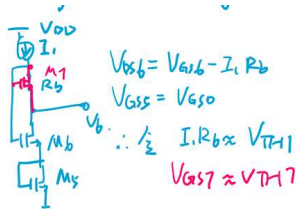 VDD
I₁
M7
Rb
Vb
M6
M5
VDS6 = VGS6 - I₁ Rb
VGS5 = VGS0
∴ 令 I₁Rb ≈ VTH1
VGS7 ≈ VTH7